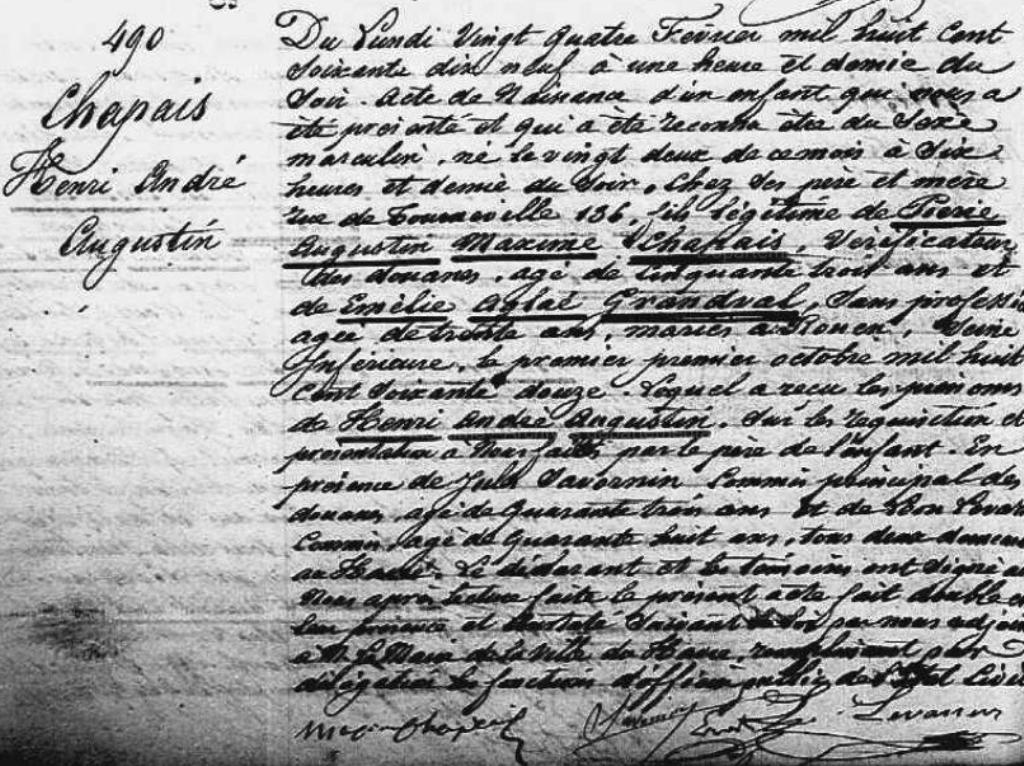 490
Chapais
Henri André
Augustin
Du Lundi Vingt quatre Février mil huit cent
Soixante dix neuf à une heure et demie du
Soir. Acte de Naissance d'un enfant qui nous a
été présenté et qui a été reconnu être du Sexe
masculin, né le vingt deux de ce mois à Six
heures et demie du Soir, chez Ses père et mère
rue de Tourneville 136, fils légitime de Pierre
Augustin Maxime Chapais, Vérificateur
des douanes, agé de Cinquante trois ans et
de Emélie Aglaé Grandval, Sans professi
agée de trente ans, mariés à Rouen, Seine
Inférieure, le premier premier octobre mil huit
Cent Soixante douze. Lequel a reçu les prénoms
de Henri André Augustin. Sur la requisition et
présentation à Nous faites par le père de l'enfant. En
présence de Jules Savornin Commis principal des
douanes, agé de Quarante trois ans et de Léon Levasse
Commis, agé de Quarante huit ans, tous deux demeu
au Havre. Le déclarant et les témoins ont Signé a
Nous après lecture faite le présent acte fait double e
leur présence et Constaté Suivant la Loi par nous adjoin
à M. le Maire de la Ville du Havre remplissant par
délégation les fonctions d'officier public de l'Etat Civil
Chapais Savornin Levasseur